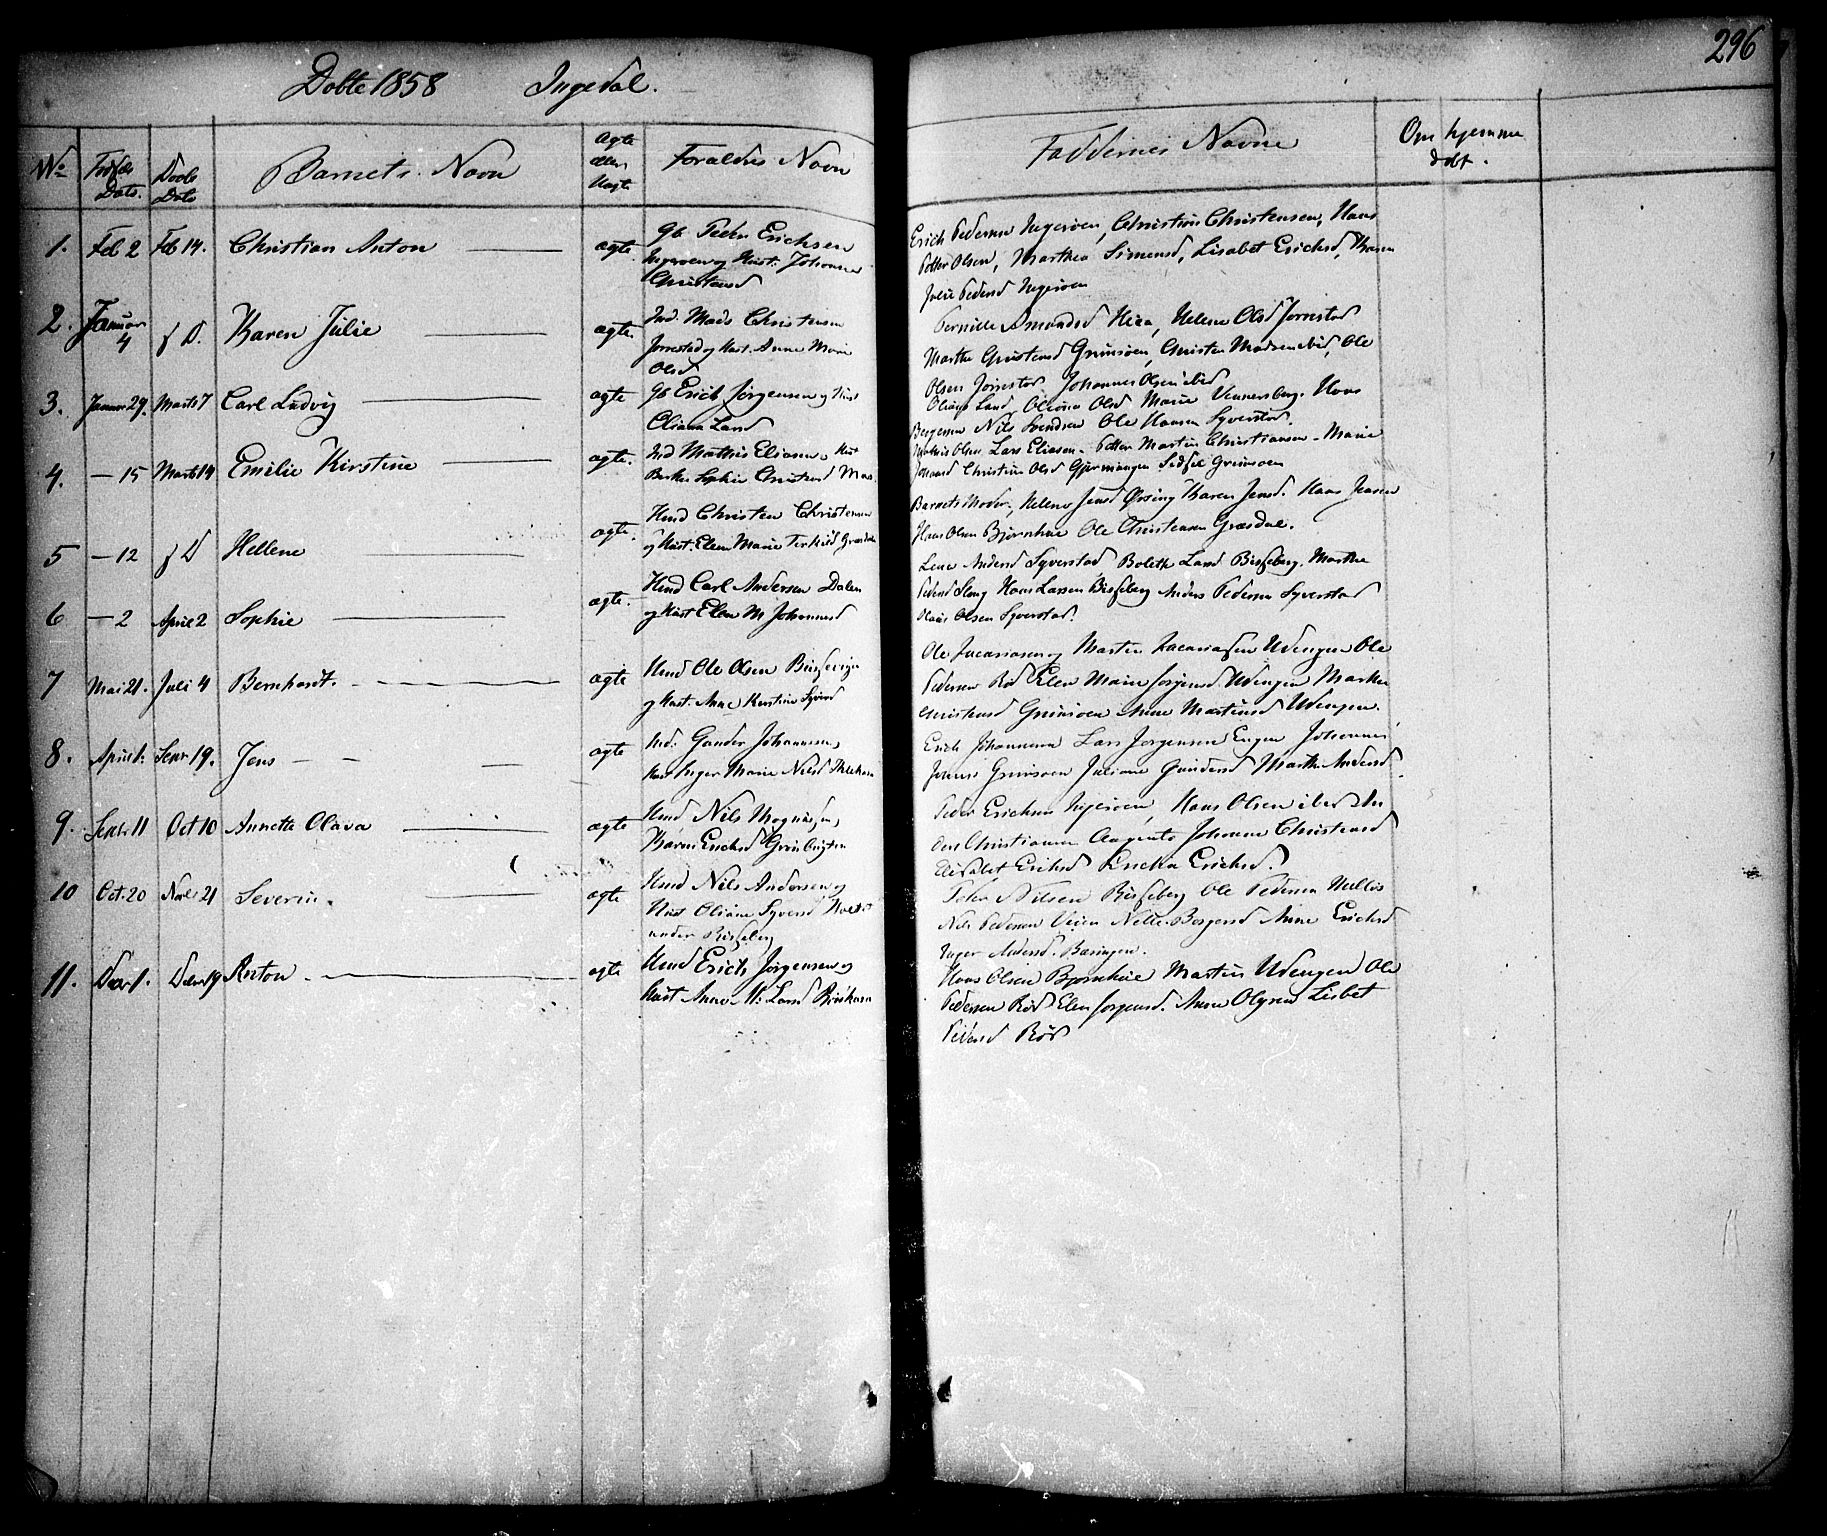 296
Døbte 1858 Ingedal.
No Fødsels Dato. Døbe Dato Barnets Navn Ægte eller Uægte Forældres Navn
Faddernes Navne Om hjemme døbt.
1. Feb 2 Feb 14. Christian Anton ægte. Gb Peder Erichsen
Ingerøen og Kust. Johanne
Christensd
Erich Pedersen Ingerøen, Christian Christensen, Hans
Petter Olsen, Marthea Simensd, Lisabet Erichsd, Karen
Julie Pedersd Ingerøen
2. Januar 4 s D. Karen Julie ægte. Ind. Mads Christensen
Jorrestad og Kust. Anne Marie
Olsd
Pernille Amundsd, Helene Olsd Jorrestad
Marthe Christensd Grimsøen, Christen Madsen ibid, Ole
Olsen Jorrestad Johannes Olsen ibid
3. Januar 29. Marts 7 Carl Ludvig ægte Gb Erich Jørgensen og Kust
Oliana Larsd
Oliana Larsd Oliana Olsd Marie Vennersberg. Hans
Børgersen Nils Svendsen Ole Hansen Syverstad.
4. — 15 Marts 14 Emilie Kirstine ægte. Ind Mathis Eliasen Kust
Berthe Sophie Christensd
Mathis Olsen Lars Eliasen Petter Martin Christiansen Marie
Christine Olsd Gjermungen Sidsel Grimsøen
5 — 12 s D Hellene ægte. Hmd Christen Christensen
og Kust. Elen Marie Terkilsd Græsdal
Barnets Moder, Helene Jensd Karen Jensd. Hans Jensen
Hans Olsen Bjørnhue Ole Christensen Græsdal.
6 — 2 April 2 Sophie ægte. Hmd Carl Andersen Dalen
og Kust Elen M Johannesd
Lene Andersd Syverstad Bolette Larsd Bisseberg. Marthe
Pedersd Hans Larsen Bisseberg Anders Pedersen Syverstad
Olsen Syverstad.
7 Mai 21. Juli 4 Bernhardt. ægte Hmd Ole Olsen
og Kust. Anne Kirstine Syversd
Ole Zacariasen og Martin Zacariasen Udengen Ole
Pedersen Rød Elen Marie Jørgensd Udengen Marthe
Christensd Grimsøen Anne Martinsd Udengen.
8. April 1. Septr 19. Jens ægte Ind. Gunder Johannesen,
Kust Inger Marie Nilsd
Erich Johannesen Lars Jørgensen Engen Johannes
Grimsøen Juliane Gundersd Marthe Andersd.
9. Septr 11 Oct 10 Annette Olava ægte Hmd Nils Magnussen,
Karen Erichsd
Peder Erichsen Ingerøen, Hans Olsen ibid An
ders Christiansen Johanne Christensd
Elisabet Erichsd Ericka Erichsd.
10 Oct. 20 Novb 21 Severin. ægte Hmd Nils Andersen og
Kust Oliane Syversd
under Bisseberg
Peder Nilsen Bisseberg Ole Pedersen
Nils Pedersen Nelle Børgersd Anne Erichsd
Inger Andersd.
11. Decbr 1. Decbr 19 Anton ægte Hmd Erich Jørgensen og
Kust Anne M. Larsd
Hans Olsen Bjørnhue Martin Udengen Ole
Pedersen Rød Elen Jørgensd. Anne Lisbet
Pedersd Rød